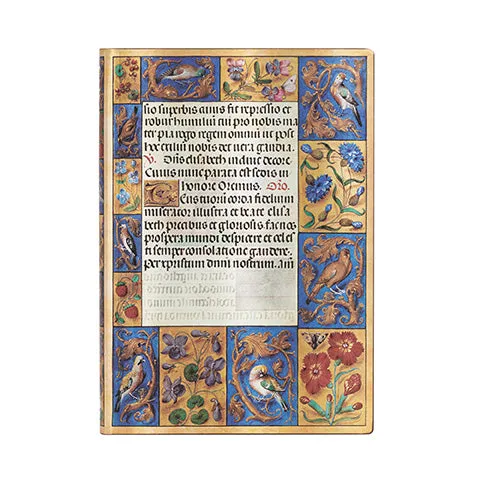 sio superbis cuius fit repressio et
robur humilium tui pro nobis ma
ter pia rogo regem omnium ut post
hec exilium nobis det vera gaudia
V. Diis elisabeth in diuic decore
Cuius nunc parata est sedis in
honore Oremus. Oro.
Tuorum corda fidelium
miserator illustra et beate elisa
beth precibus et gloriosis fac nos
prospera mundi despicere et celes
ti semper consolatione gaudere.
Per xpistum dnm nostrum. Am